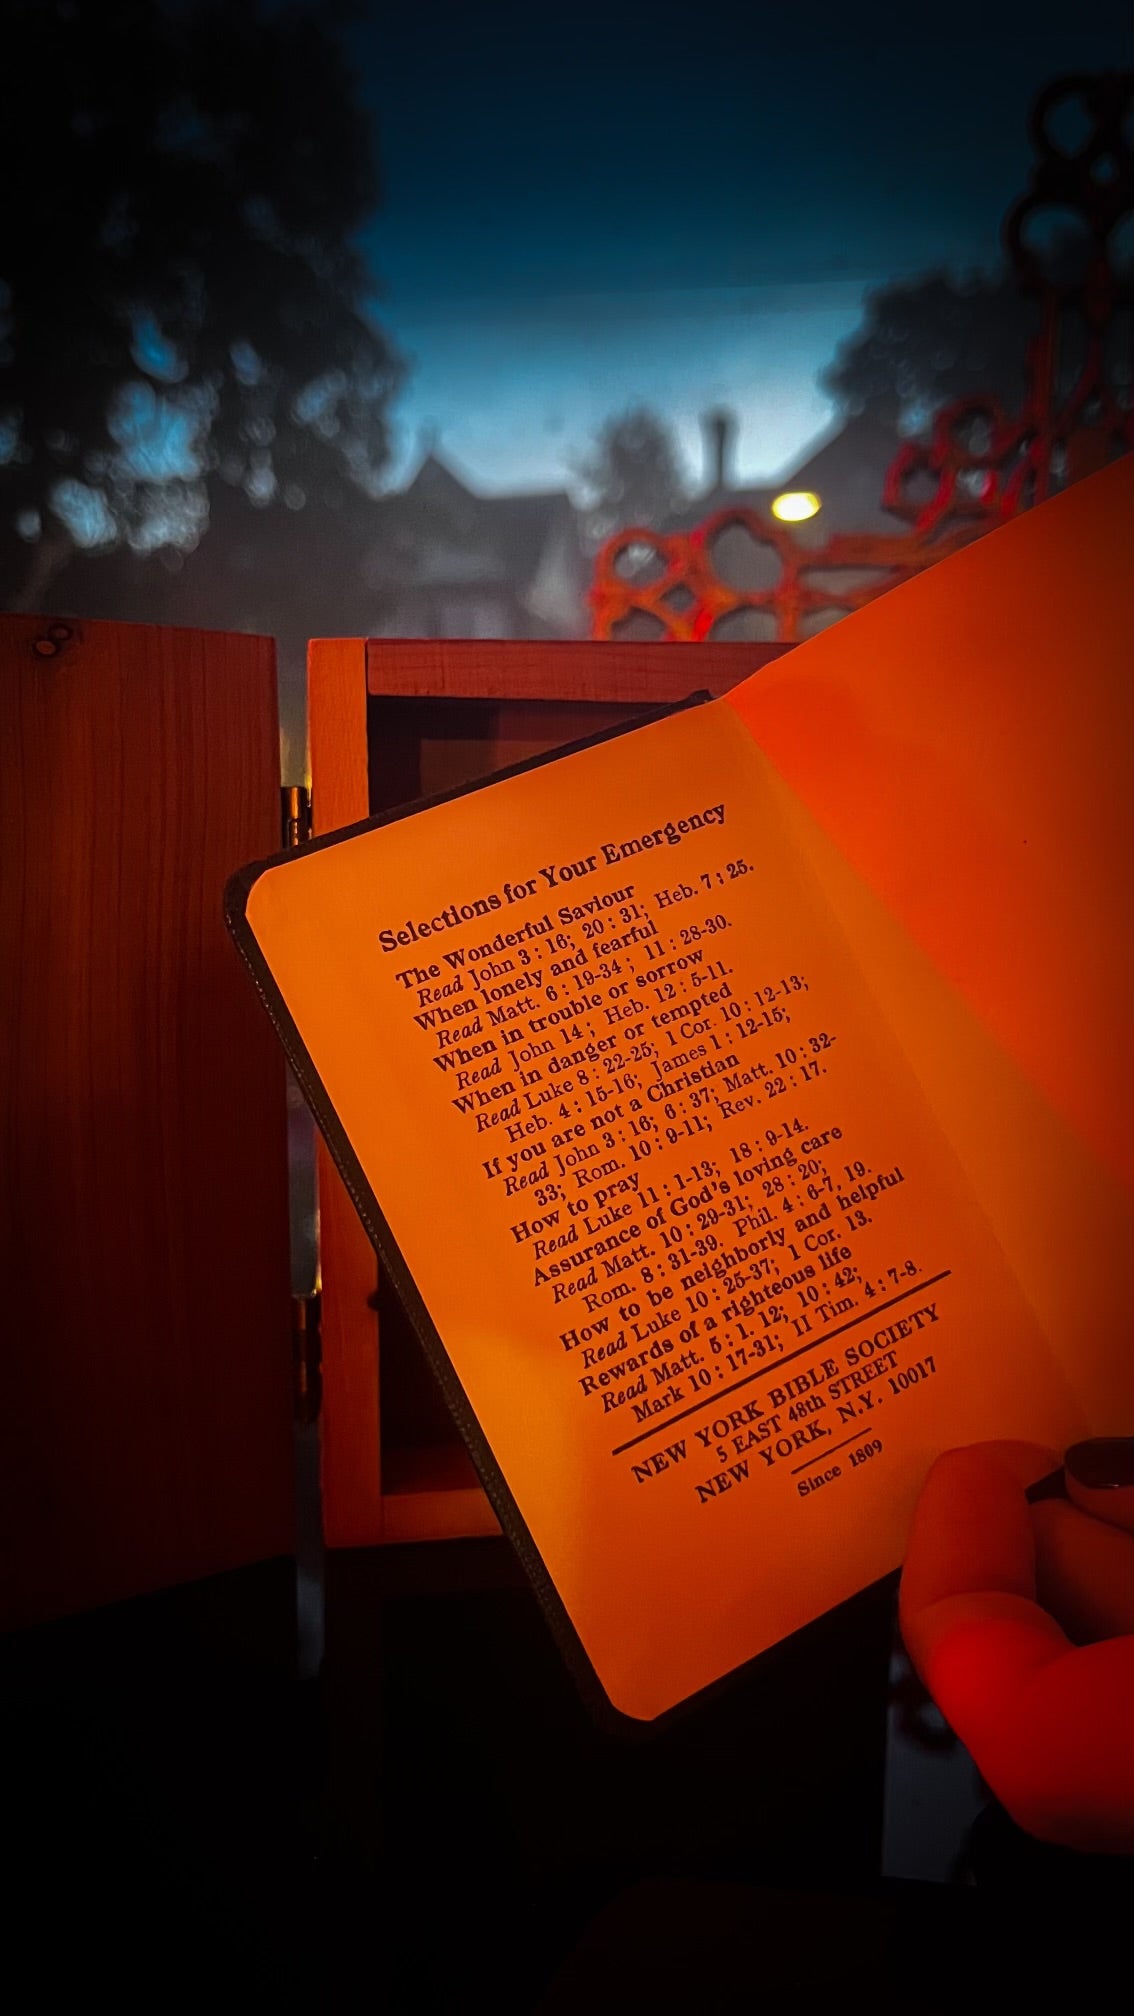 Selections for Your Emergency
The Wonderful Saviour
Read John 3 : 16; 20 : 31; Heb. 7 : 25.
When lonely and fearful
Read Matt. 6 : 19-34 ; 11 : 28-30.
When in trouble or sorrow
Read John 14 ; Heb. 12 : 5-11.
When in danger or tempted
Read Luke 8 : 22-25; 1 Cor. 10 : 12-13;
Heb. 4 : 15-16; James 1 : 12-15;
If you are not a Christian
Read John 3 : 16; 6 : 37; Matt. 10 : 32-
33; Rom. 10 : 9-11; Rev. 22 : 17.
How to pray
Read Luke 11 : 1-13; 18 : 9-14.
Assurance of God's loving care
Read Matt. 10 : 29-31; 28 : 20;
Rom. 8 : 31-39. Phil. 4 : 6-7, 19.
How to be neighborly and helpful
Read Luke 10 : 25-37; 1 Cor. 13.
Rewards of a righteous life
Read Matt. 5 : 1. 12; 10 : 42;
Mark 10 : 17-31; II Tim. 4 : 7-8.
NEW YORK BIBLE SOCIETY
5 EAST 48th STREET
NEW YORK, N.Y. 10017
Since 1809